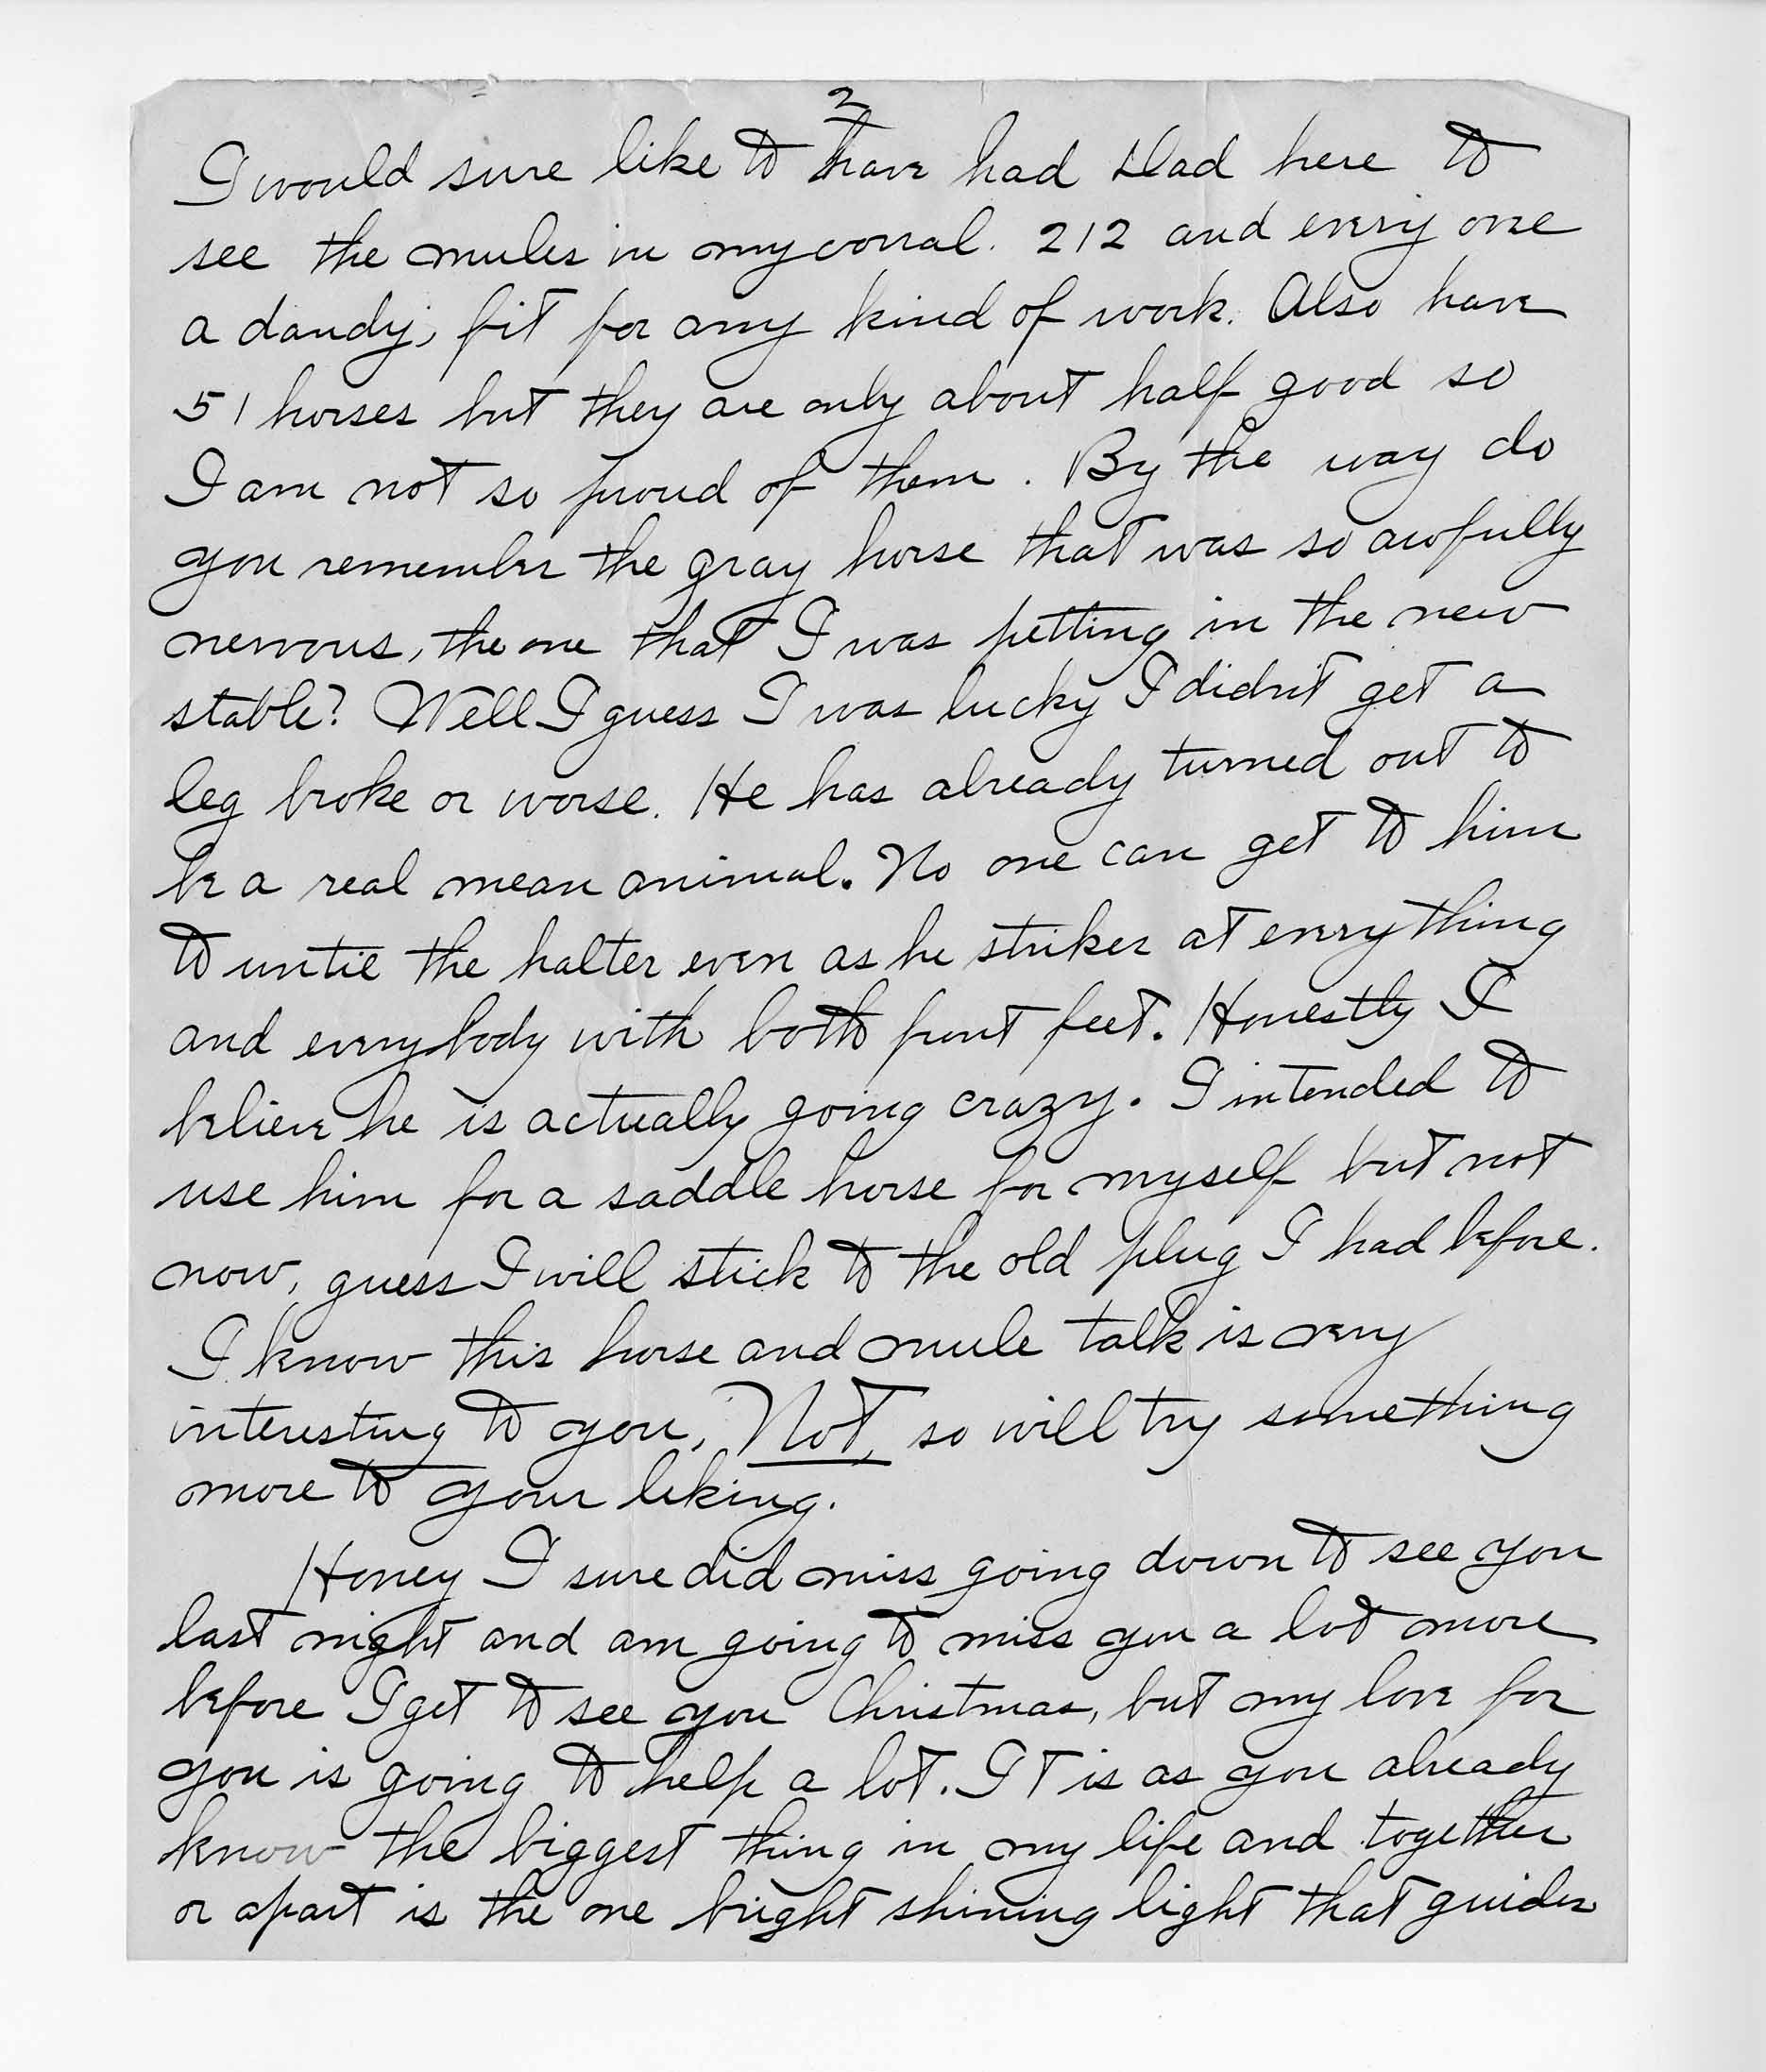 2
I would sure like to have had Dad here to
see the mules in my corral. 212 and every one
a dandy, fit for any kind of work. Also have
51 horses but they are only about half good so
I am not so proud of them. By the way do
you remember the gray horse that was so awfully
nervous, the one that I was petting in the new
stable? Well I guess I was lucky I didn't get a
leg broke or worse. He has already turned out to
be a real mean animal. No one can get to him
to untie the halter even as he strikes at everything
and everybody with both front feet. Honestly I
believe he is actually going crazy. I intended to
use him for a saddle horse for myself but not
now, guess I will stick to the old plug I had before.
I know this horse and mule talk is very
interesting to you, Not, so will try something
more to your liking.
Honey I sure did miss going down to see you
last night and am going to miss you a lot more
before I get to see you Christmas, but my love for
you is going to help a lot. It is as you already
know the biggest thing in my life and together
or apart is the one bright shining light that guides